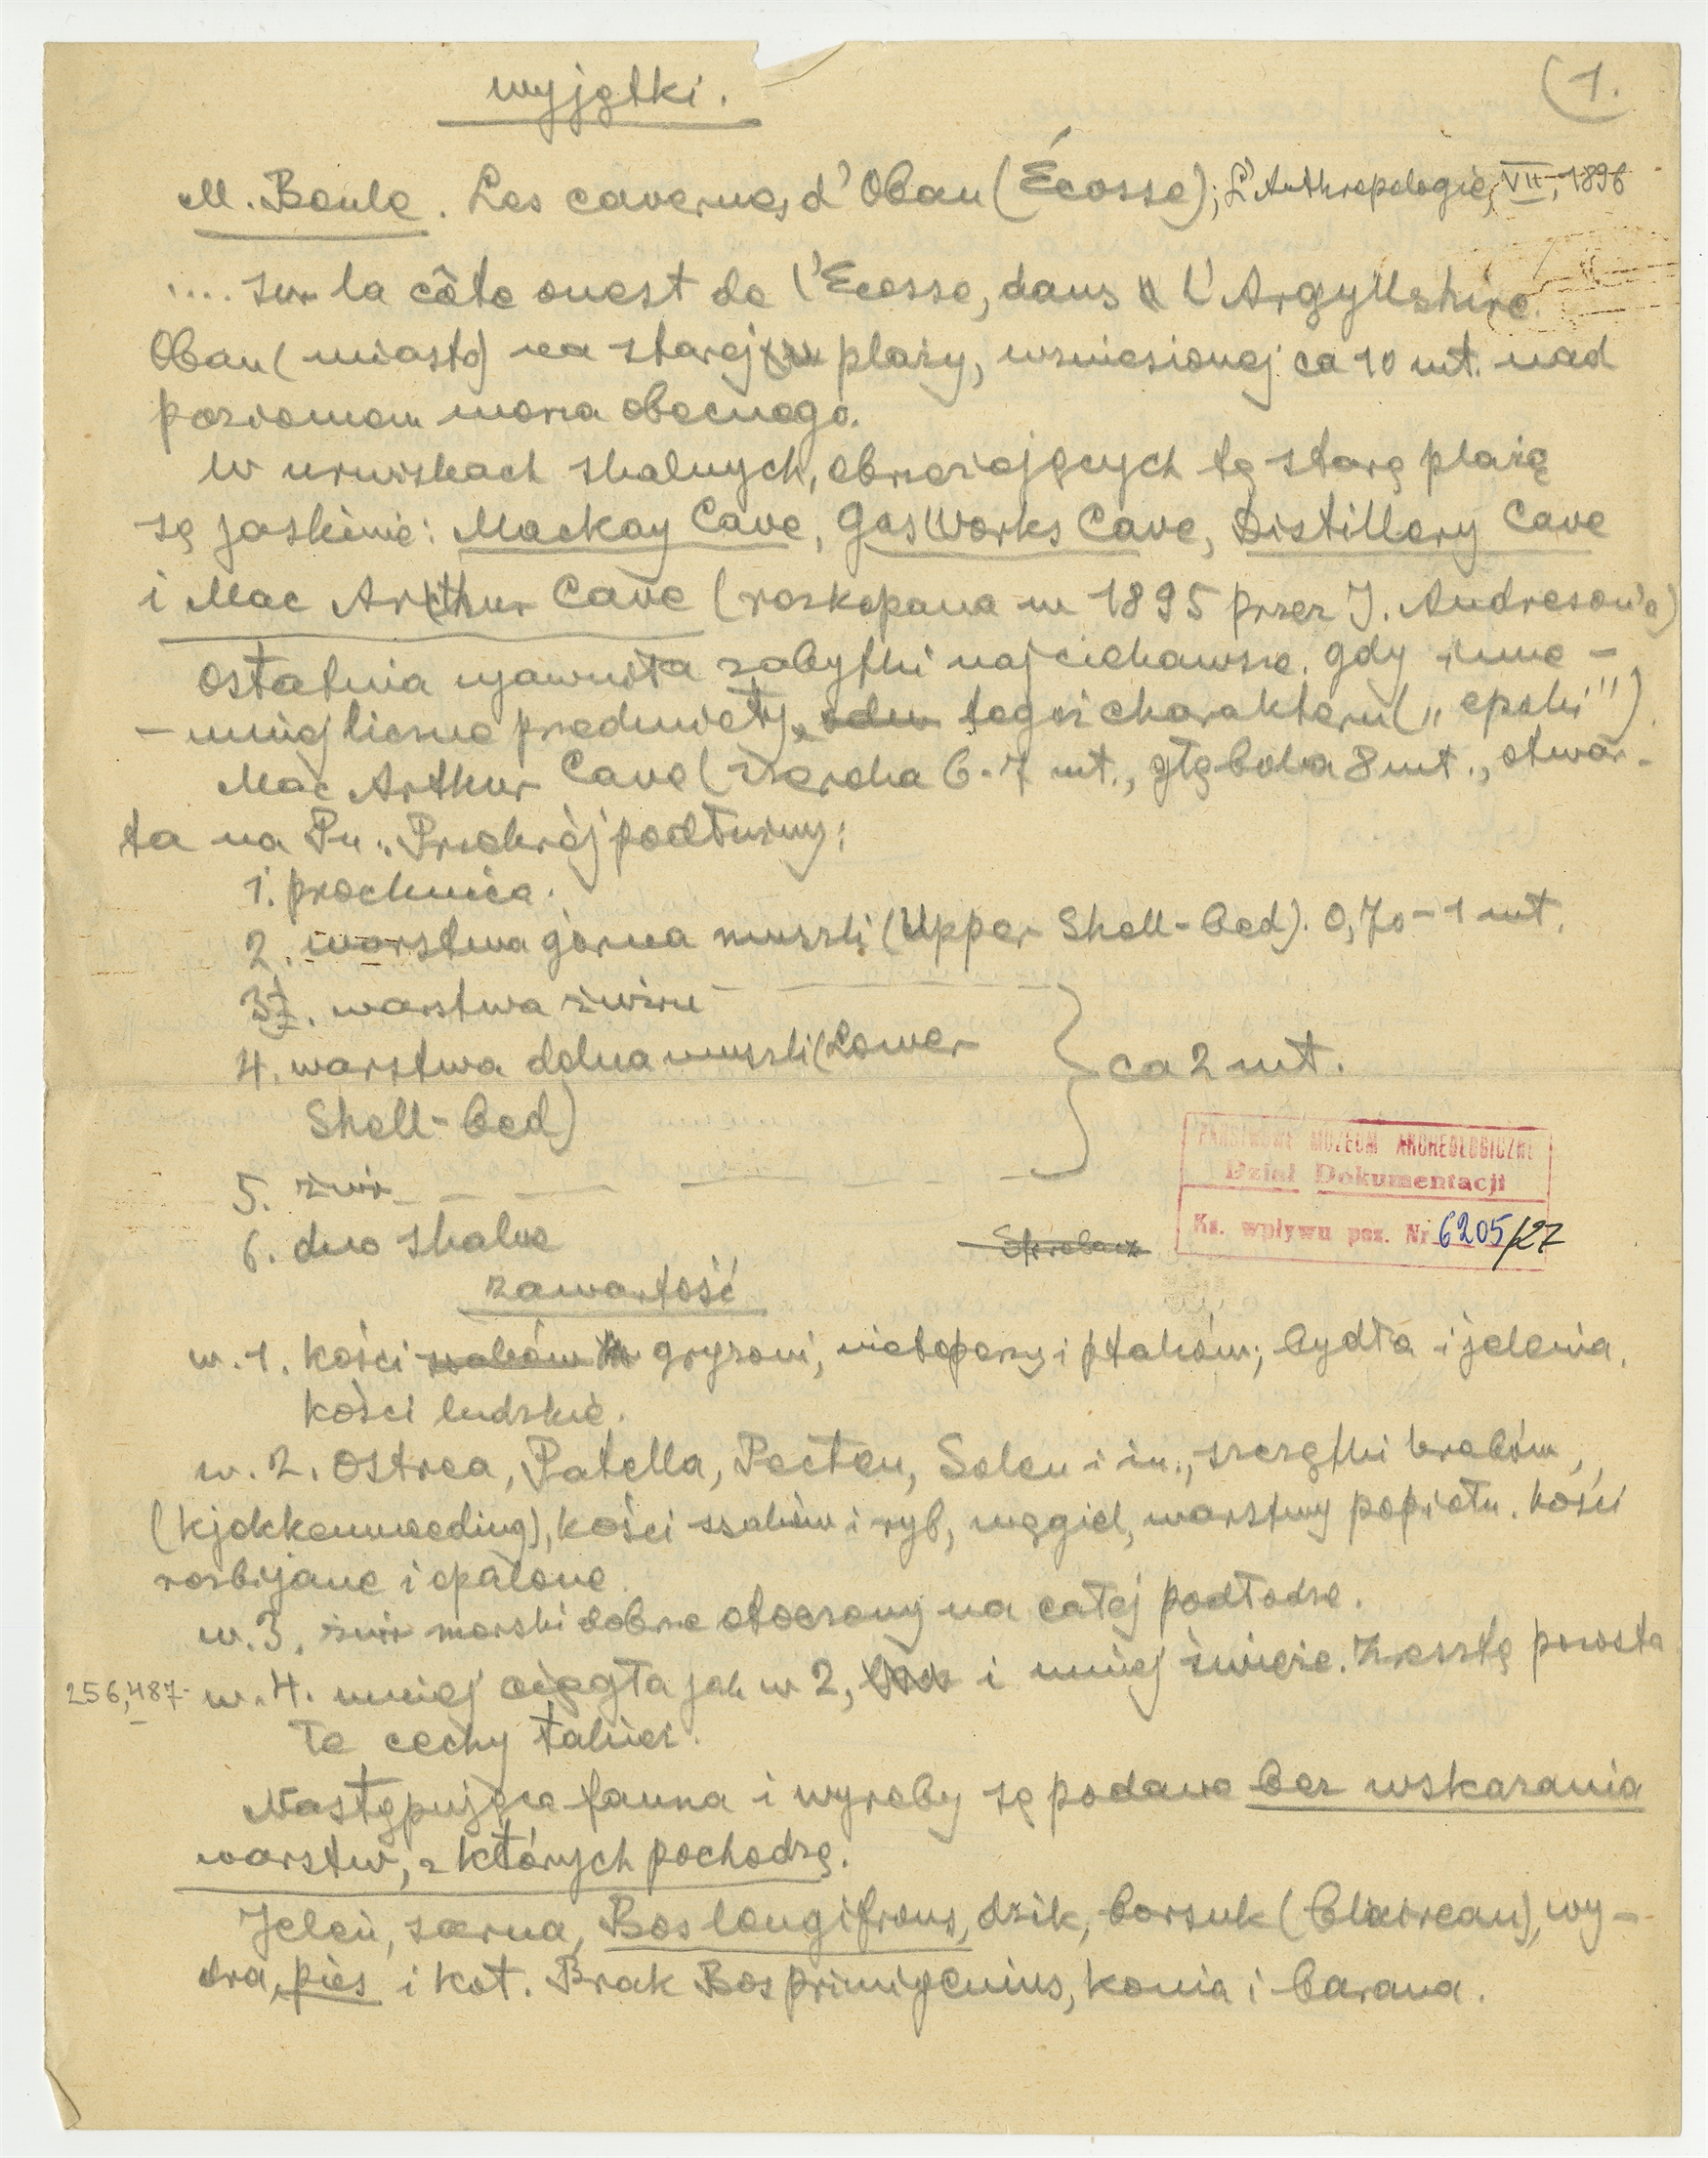 wyjątki.
(1.
M. Boule. Les cavernes d'Oban (Écosse); L'Anthropologie, VII, 1896
.... sur la côte ouest de l'Ecosse, dans l'Argyllshire.
Oban (miasto) na starej plaży, wzniesionej ca 10 mt. nad
poziomem morza obecnego.
W urwiskach skalnych, obrzeżających tę starą plażę
są jaskinie: Mackay Cave, Gas Works Cave, Distillery Cave
i Mac Arthur Cave (rozkopana w 1895 przez J. Andresona)
Ostatnia ujawniła zabytki najciekawsze, gdy inne -
- mniej liczne przedmioty, tegoż charakteru („epoki”).
Mac Arthur Cave (szeroka 6-7 mt., głęboka 8 mt., otwar-
ta na Pn. Przekrój podłużny:
1. próchnica.
2. warstwa górna muszli (Upper Shell-bed). 0,70 - 1 mt.
3. warstwa żwiru
4. warstwa dolna muszli (Lower
Shell-bed)
ca 2 mt.
5. żwir
6. dno skalne
PAŃSTWOWE MUZEUM ARCHEOLOGICZNE
Dział Dokumentacji
Ks. wpływu poz. Nr 6205/27
zawartość
w. 1. kości gryzoni, nietoperzy i ptaków; bydła i jelenia,
kości ludzkie.
w. 2. Ostrea, Patella, Pecten, Solen i in., szczątki krabów,
(kjokkenmoeding), kości ssaków i ryb, węgiel, warstwy popiołu. kości
rozbijane i opalone.
w. 3. żwir morski dobrze otoczony na całej podłodze.
256,487- w. 4. mniej ciągła jak w 2, i mniej świeże. Zresztą pozosta
łe cechy takież.
Następujące fauna i wyroby są podane bez wskazania
warstw, z których pochodzą.
Jeleń, sarna, Bos longifrons, dzik, borsuk (blaireau), wy-
dra, pies i kot. Brak Bos primigenius, konia i barana.